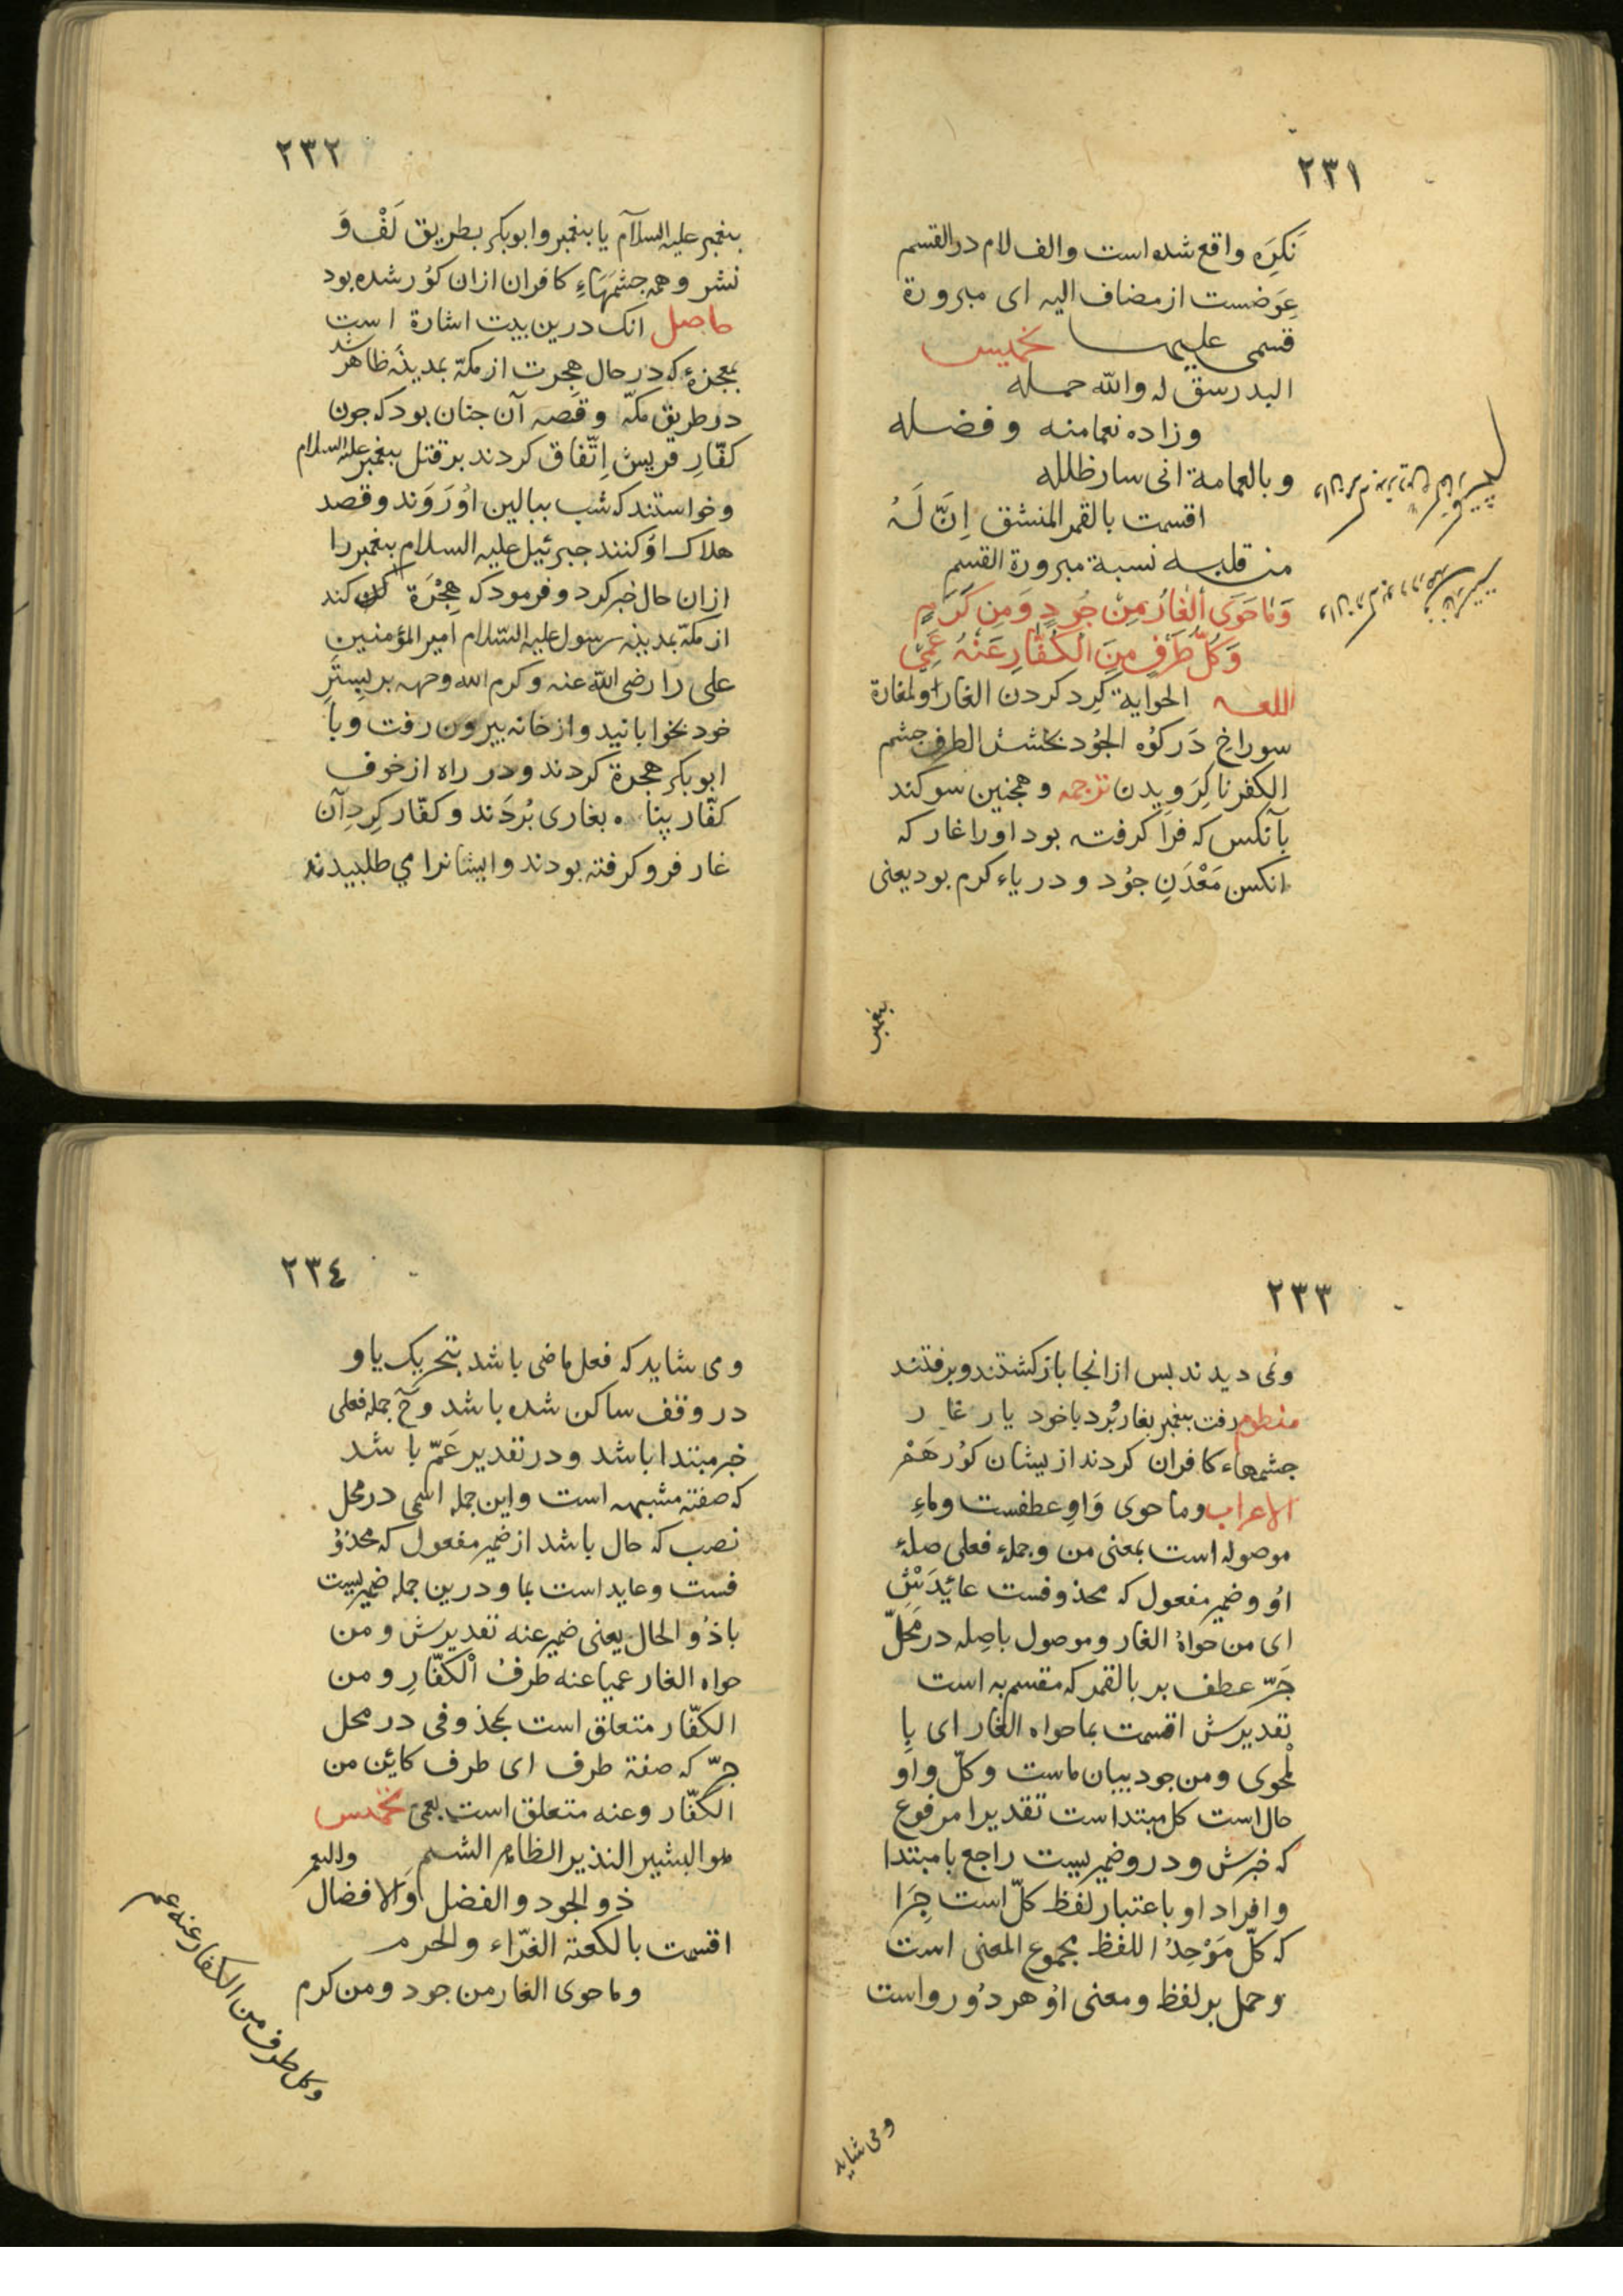 ٢٣١
نَكرَه واقع شده است والف لام در القسم
عِوَضست از مضاف اليه اى مبرورة
قسمى عليهما تخميس
البدر سق له والله حمله
وزاده نعما منه وفضله
وبالعمامة انى سار ظلله
اقسمت بالقمر المنشق اِنَّ لَهُ
من قلبه نسبة مبرورة القسم
وَمَا حَوَى الْغَارُ مِنْ جُودٍ وَمِن كَرَمٍ
وَكُلُّ طَرْفٍ مِنَ الْكُفَّارِ عَنْهُ عَمِىْ
اللغه الحواية كِرد كردن الغار والمغارة
سوراخ دَر كوُه الجُود بخشش الطرف جشم
الكفر ناكِرَويدن ترجمه وهمجنين سوكند
بآنكس كه فرا كرفته بود اورا غار كه
انكس مَعْدَنِ جوُد و درياء كرم بود يعنى
بيغمبر
٢٣٢
بيغمبر عليه السلام يا بيغمبر وابوبكر بطريق لَفْ وَ
نشر وهمه جشمَهَاءِ كافران ازان كوُر شده بود
حاصل انك درين بيت اشارة است
بمعجزهء كه در حال هِجرت از مكّه بمدينَه ظاهر شد
در طريق مكّه وقصه آن جنان بود كه جون
كفّارِ قريش اِتّفاق كردند بر قتل بيغمبر عليه السلام
وخواستند كه شب ببالين اورَوَند وقصد
هلاك اوُ كنند جبرئيل عليه السلام بيغمبر را
ازان حال خبر كرد وفرمود كه هِجْرَة كند
از مكّه بمدينه رسول عليه السّلام امير المؤمنين
على را رضى الله عنه وكرم الله وجهه بر بِستَرِ
خود بخوابانيد واز خانه بيرون رفت وبا
ابوبكر هجرة كردند ودر راه از خوف
كفّار پناه بغارى بُردَند وكفّار كِردِ آن
غار فرو كرفته بودند وايشانرا مي طلبيدند
٢٣٣
ونمى ديدند بس ازانجا باز كشتند وبرفتند
منظوم رفت بيغمبر بغار بُرد با خود يار غار
جشمهاء كافران كردند ازيشان كوُر هَمْ
الاعراب وما حوى وَاوِ عطفست وماءِ
موصوله است بمعنى من وجملهء فعلى صلهء
اوُ وضمير مفعول كه محذوفست عائيدَشْ
اى من حواهُ الغار وموصول باصِله در مَحَلّ
جَرّ عطف بر بالقمر كه مقسم به است
تقديرش اقسمت بما حواه الغار اى بِا
لْمحوى ومن جود بيان ماست وكلّ واو
حال است كل مبتداست تقديرا مرفوع
كه خبرش ودرو ضمير يست راجع با مبتدا
وافراد او باعتبار لفظ كلّ است جِرَا
كه كلّ مَوْحِدُ اللفظ مجموع المعنى است
وحمل بر لفظ ومعنى اوُ هر دوُ رواست
ومى شايد
٢٣٤
ومى شايد كه فعل ماضى باشد بتحريك يا و
در وقف ساكن شده باشد وحَ جمله فعلى
خبر مبتدا باشد ودر تقدير عَمّ باشد
كه صفتهٔ مشبهه است واين جمله اسمى در محل
نصب كه حال باشد از ضمير مفعول كه محذوُ
فست وعايد است بما ودرين جمله ضميريست
با ذوُ الحال يعنى ضمير عنه تقديرش ومن
حواه الغار عميا عنه طرفُ الْكفّارِ ومن
الكفّار متعلق است بمحذوفى در محل
جرّ كه صفة طرف اى طرف كائن من
الكفّار وعنه متعلق است بعمى تخميس
هو البشير النذير الظاهر الشيم
ذو الجود والفضل وَالافضال
اقسمت بالكعبة الغرّاء والحرم
وما حوى الغار من جود ومن كرم
وكل طرف من الكفار عنه عمى